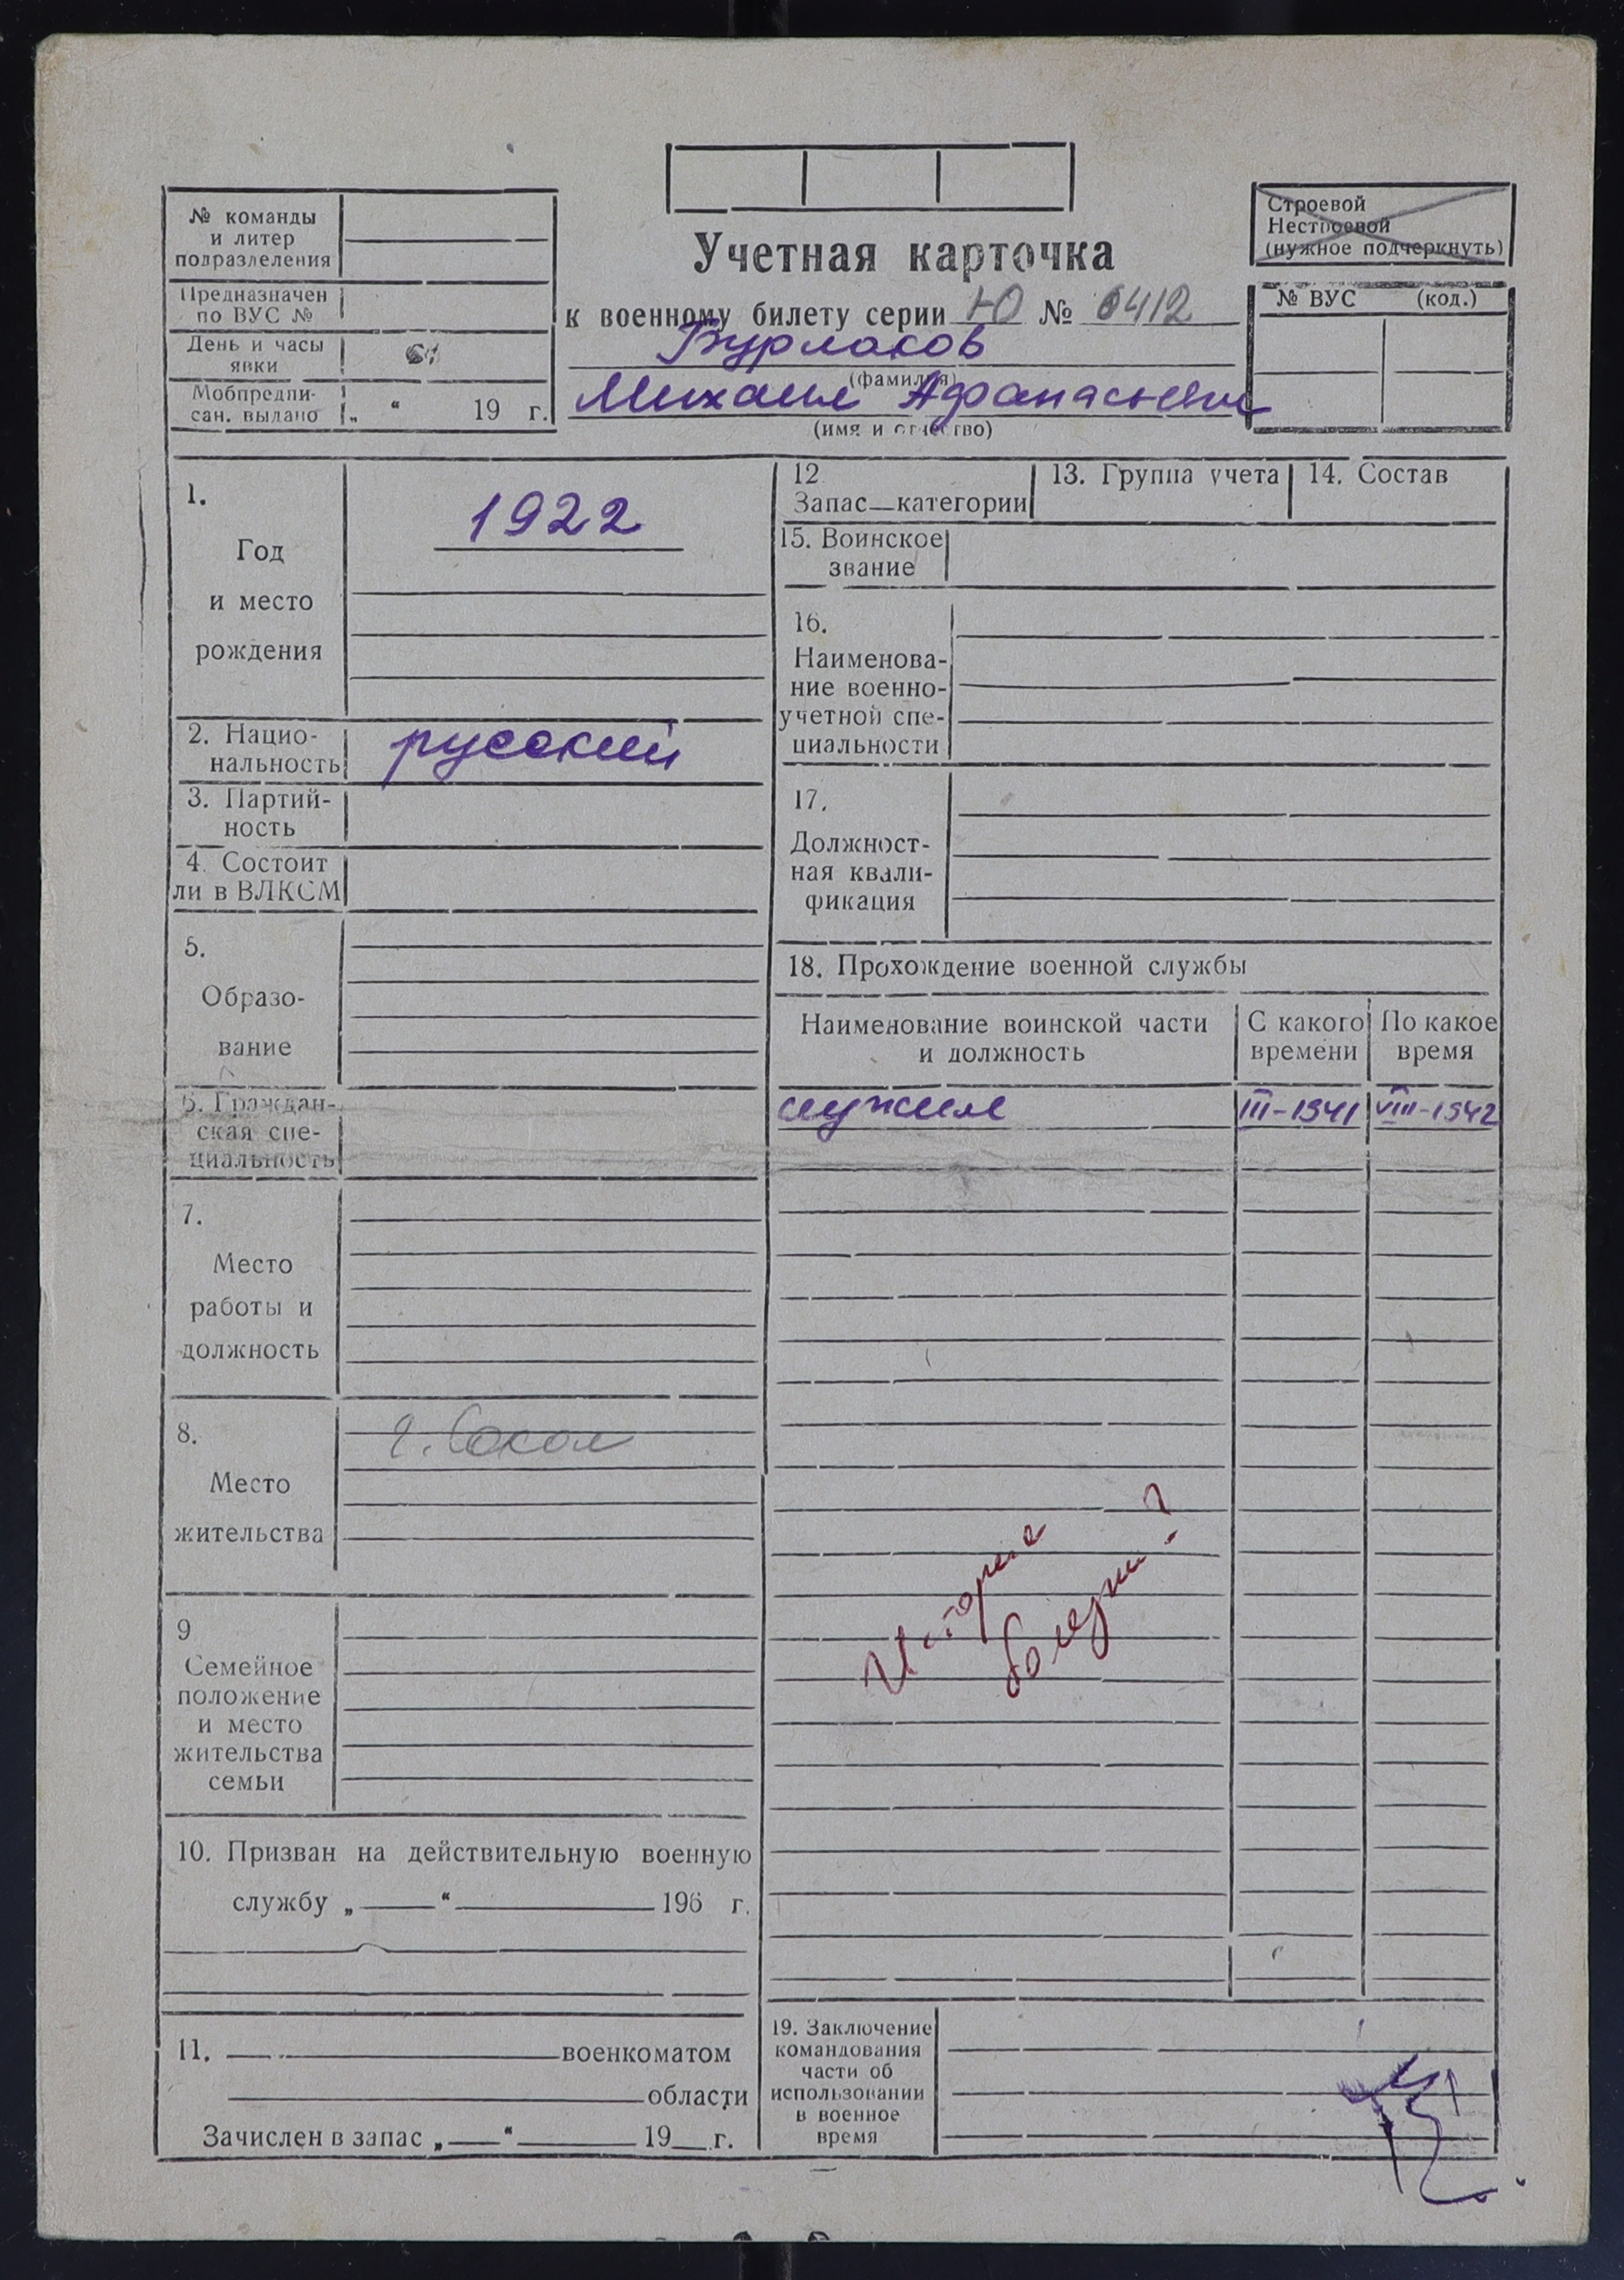 № команды
и литер
подразделения
Предназначен
по ВУС №
День и часы
явки
Мобпредпи-
сан. выдано „ “ 19 г.
Учетная карточка
к военному билету серии Ю № 6412
Бурлаков
(фамилия)
Михаил Афанасьевич
(имя и отчество)
Строевой
Нестроевой
(нужное подчеркнуть)
№ ВУС (код.)
1.
Год
и место
рождения
1922
2. Нацио-
нальность
русский
3. Партий-
ность
4. Состоит
ли в ВЛКСМ
5.
Образо-
вание
6. Граждан-
ская спе-
циальность
7.
Место
работы и
должность
8.
Место
жительства
г. Сокол
9
Семейное
положение
и место
жительства
семьи
10. Призван на действительную военную
службу „ “ 196 г.
11. военкоматом
области
Зачислен в запас „ “ 19 г.
12
Запас—категории
13. Группа учета
14. Состав
15. Воинское
звание
16.
Наименова-
ние военно-
учетной спе-
циальности
17.
Должност-
ная квали-
фикация
18. Прохождение военной службы
Наименование воинской части
и должность
С какого
времени
По какое
время
служил III-1941 VIII-1942
История
болезни?
19. Заключение
командования
части об
использовании
в военное
время